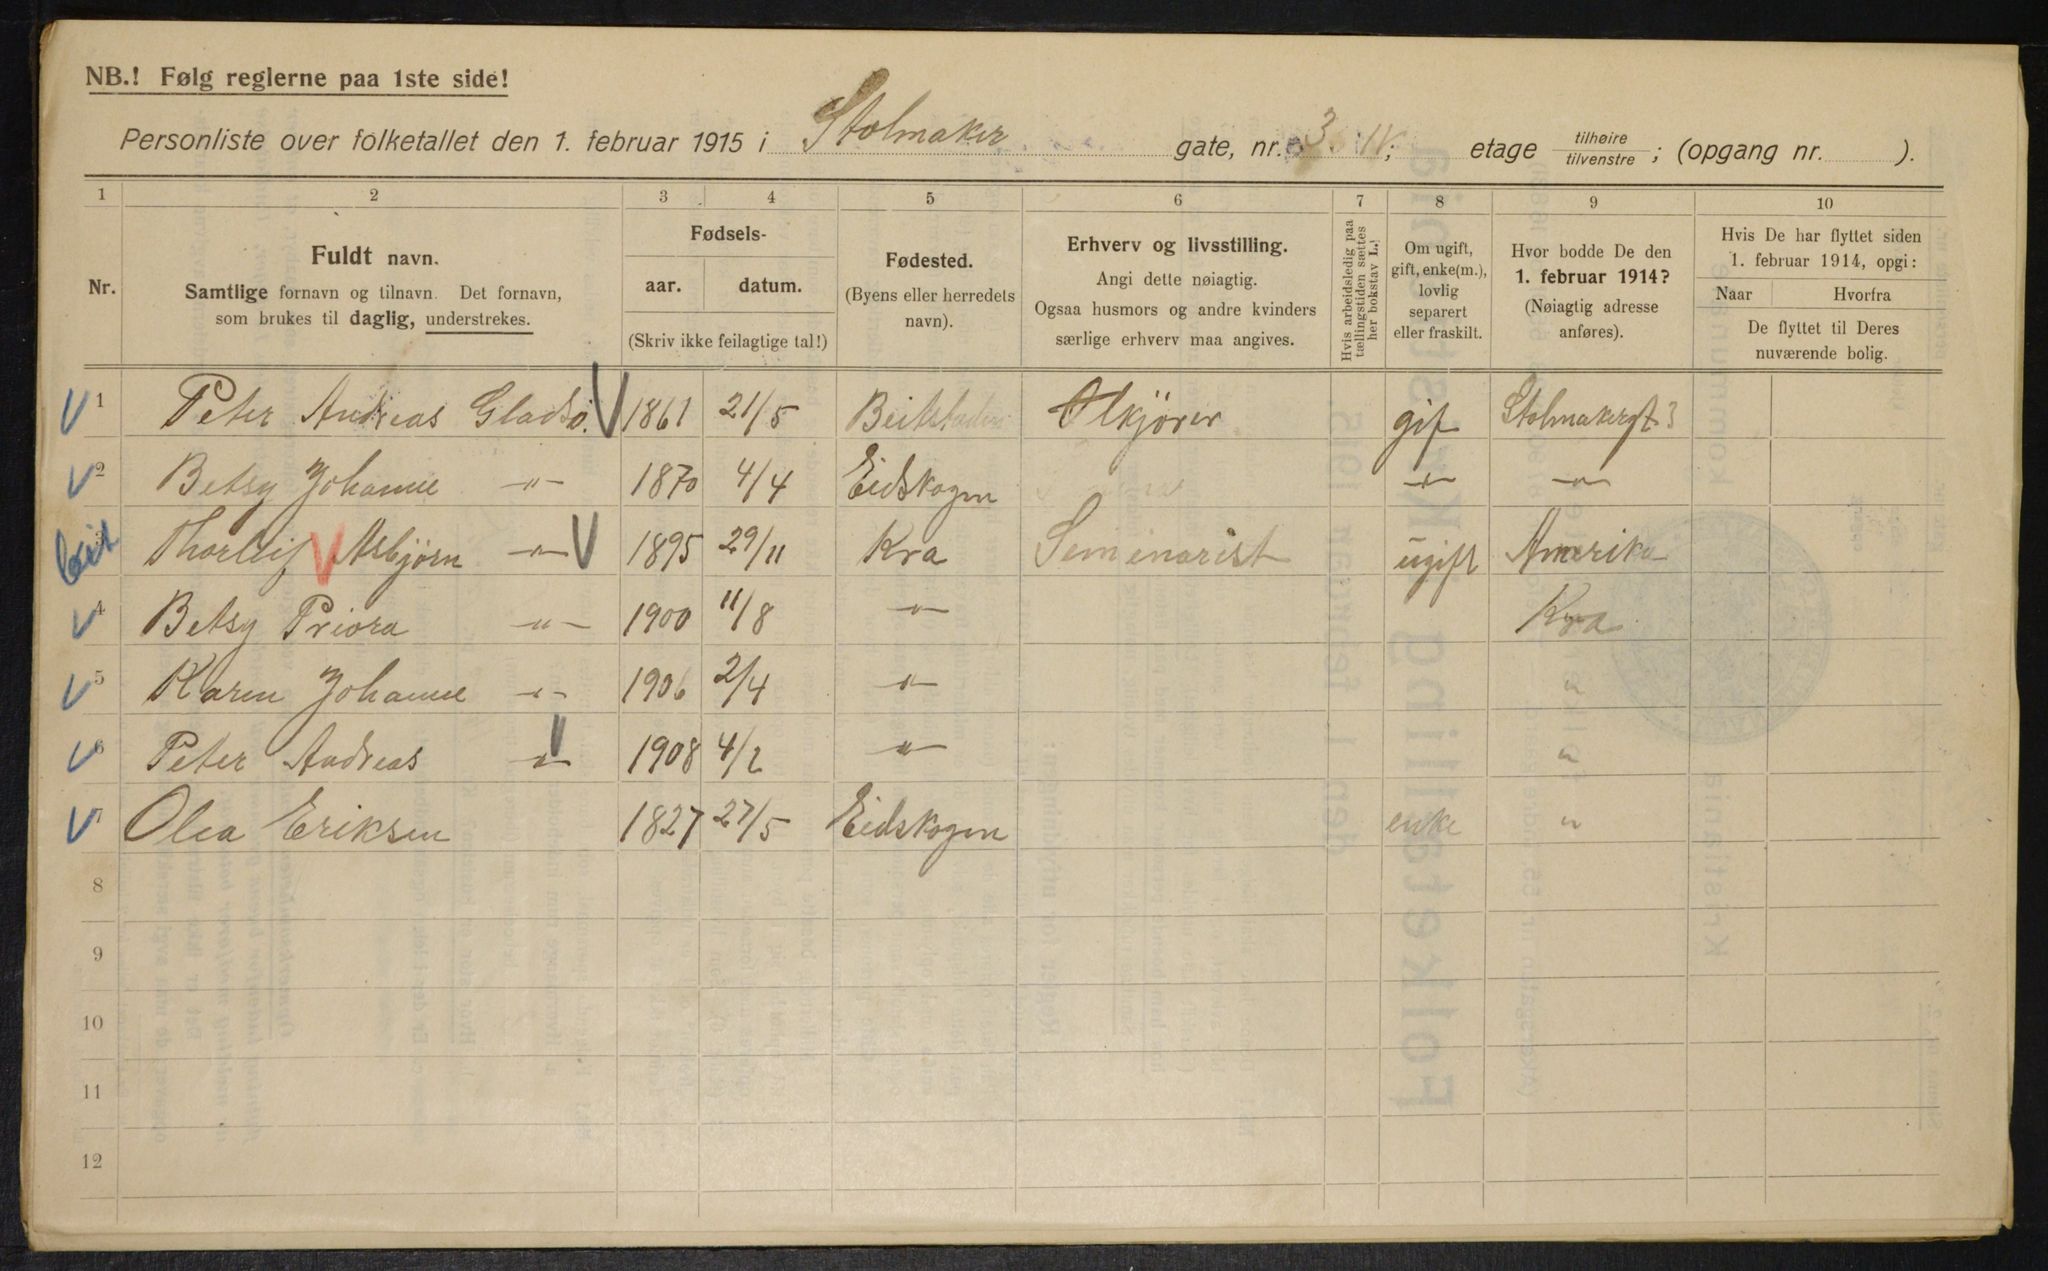 NB.! Følg reglerne paa 1ste side!
Personliste over folketallet den 1. februar 1915 i Stolmaker gate, nr. 3 IV; etage tilhøire tilvenstre; (opgang nr. ).
1 2 3 4 5 6 7 8 9 10
Nr.
Fuldt navn.
Samtlige fornavn og tilnavn. Det fornavn,
som brukes til daglig, understrekes.
Fødsels-
aar. datum.
(Skriv ikke feilagtige tal!)
Fødested.
(Byens eller herredets
navn).
Erhverv og livsstilling.
Angi dette nøiagtig.
Ogsaa husmors og andre kvinders
særlige erhverv maa angives.
Hvis arbeidsledig paa
tællingstiden sættes
her bokstav L.!
Om ugift,
gift, enke(m.),
lovlig
separert
eller fraskilt.
Hvor bodde De den
1. februar 1914?
(Nøiagtig adresse
anføres).
Hvis De har flyttet siden
1. februar 1914, opgi:
Naar Hvorfra
De flyttet til Deres
nuværende bolig.
1 Peter Andreas Gladsø. 1861 21/5 Beitstaden Ølkjører gif Stolmakergt 3
2 Betsy Johanne -"- 1870 4/4 Eidskogen -"- -"-
3 Thorleif Asbjørn -"- 1895 29/11 Kra Seminarist ugift Amerika
4 Betsy Priora -"- 1900 11/8 -"- Kra
5 Karen Johanne -"- 1906 2/4 -"- "
6 Peter Andreas -"- 1908 4/2 -"- "
7 Olea Eriksen 1827 27/5 Eidskogen enke "
8
9
10
11
12